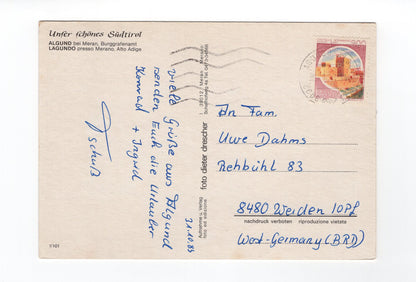 Unser schönes Südtirol
ALGUND bei Meran, Burggrafenamt
LAGUNDO presso Merano, Alto Adige
Viele Grüße aus Algund
senden Euch die Urlauber
Konrad + Ingrid
31.10.83
Tschüß
foto dieter drescher
An Fam.
Uwe Dahms
Rehbühl 83
8480 Weiden /OPf
West-Germany (BRD)
nachdruck verboten · riproduzione vietata